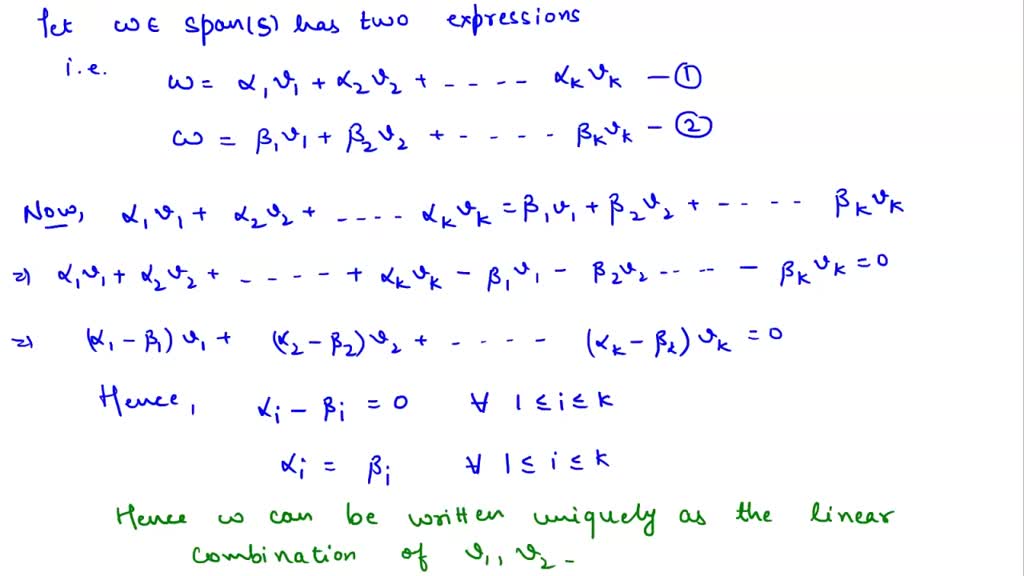 let ω ∈ span(S) has two expressions
i.e. ω = α₁v₁ + α₂v₂ + ----- αₖvₖ — ①
ω = β₁v₁ + β₂v₂ + ----- βₖvₖ — ②
Now, α₁v₁ + α₂v₂ + ---- αₖvₖ = β₁v₁ + β₂v₂ + ----- βₖvₖ
⇒ α₁v₁ + α₂v₂ + ----- + αₖvₖ - β₁v₁ - β₂v₂ ---- - βₖvₖ = 0
⇒ (α₁ - β₁)v₁ + (α₂ - β₂)v₂ + ----- (αₖ - βₖ)vₖ = 0
Hence, αᵢ - βᵢ = 0 ∀ 1 ≤ i ≤ k
αᵢ = βᵢ ∀ 1 ≤ i ≤ k
Hence ω can be written uniquely as the linear
combination of v₁, v₂ -